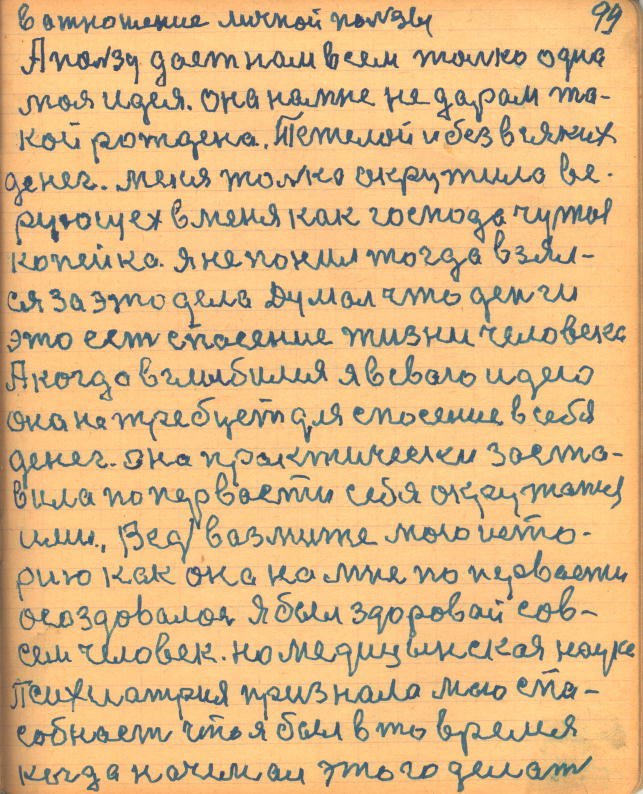 99
в отношение личной ползы
А ползу дает нам всем толко одна
моя идея. Она на мне не даром та-
кой рождена. Тежелой и без всяких
денег. Меня толко окружило ве-
рующех в меня как господа чужая
копейка. Я не понил тогда взял-
ся за это дела Думал что денги
это ест спасение жизни человека
А когда вглибился я в сваю идею
она не требует для спосение в себя
денег. Она практически заста-
вила по первасти себя окружатся
ими., Вед возмите мою исто-
рию как она на мне по первасти
осоздовалоя Я был здоровай сов-
сем человек. но медицынская наука
Психиатрия признала мою спа-
собност что я был в то время
когда начемал этого делат